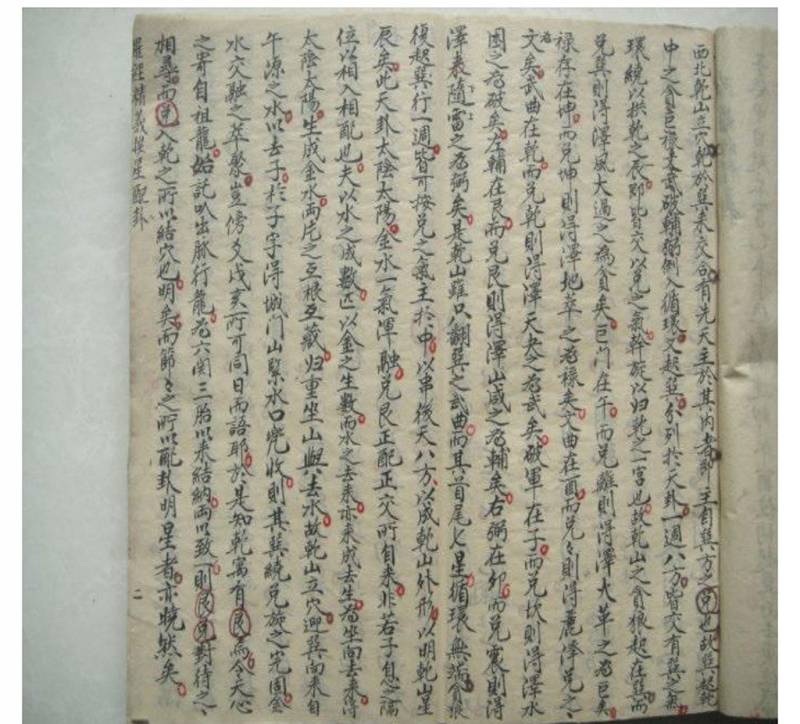 西北乾山立穴乾於巽來交会有先天主於其內者即主自巽方之兌也故巽起乾
中之貪巨祿文武破輔弼倒入循環又起巽分列於天卦一週八方皆交有巽之氣
環繞以拱乾之辰即皆交以兌之氣幹旋以归乾之一宮也故乾山之貪狼起在巽而
兌巽則得澤風大過之為貪矣巨門在午而兌離則得澤火革之為巨矣
祿存在坤而兌坤則得澤地萃之為祿矣文曲在酉而兌兌則得麗澤兌之
為文矣武曲在乾而兌乾則得澤天夬之為武矣破軍在子而兌坎則得澤水
困之為破矣左輔在艮而兌艮則得澤山咸之為輔矣右弼在卯而兌震則得
澤來隨雷之為弼矣是乾山雖只翻巽之武曲而其首尾七星循環無端貪狼
復起巽行一週皆可按兌之氣主於中以串後天八方以成乾山外形以明乾山星
辰矣此天卦太陰太陽金水一氣渾融兌艮正配正穴所自來非若子息之隔
位以相入相配也夫以水之成數匹以金之生數而水之去來亦來成去生為坐向去來得
太陰太陽生成金水兩片之互根互藏归重坐山與去水故乾山立穴迎巽向來自
午源之水以去子於子字得城門山緊水口兜收則其巽繞兌旋之宅固金
水穴融之萃聚豈傍爻戊亥所可同日而語耶於是知乾寓有艮焉今天心
之寄自祖龍始託以出脉行龍為六関三胎以來結納両以致一則艮兌對待之
相尋而兌入乾之所以結穴也明矣而節々之所以配卦明星者亦曉然矣
羅經精義撥星配卦
二